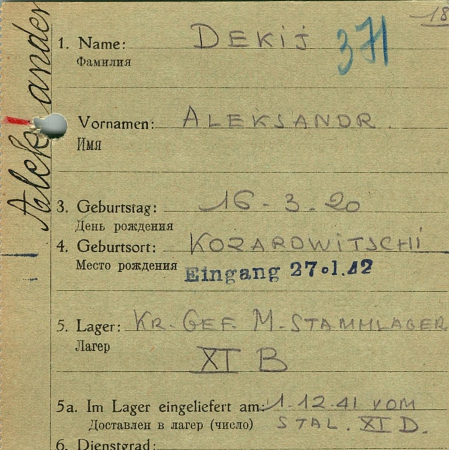 -18
1. Name: DEKIJ
Фамилия
371
Vornamen: ALEKSANDR.
Имя
Aleksander
3. Geburtstag: 16-3-20
День рождения
4. Geburtsort: KOZAROWITSCHI
Место рождения
Eingang 27.1.42
5. Lager: KR-GEF. M-STAMMLAGER
Лагер
XI B
5a. Im Lager eingeliefert am: 1-12-41 VOM
Доставлен в лагер (число) STAL. XI D.
6. Dienstgrad: